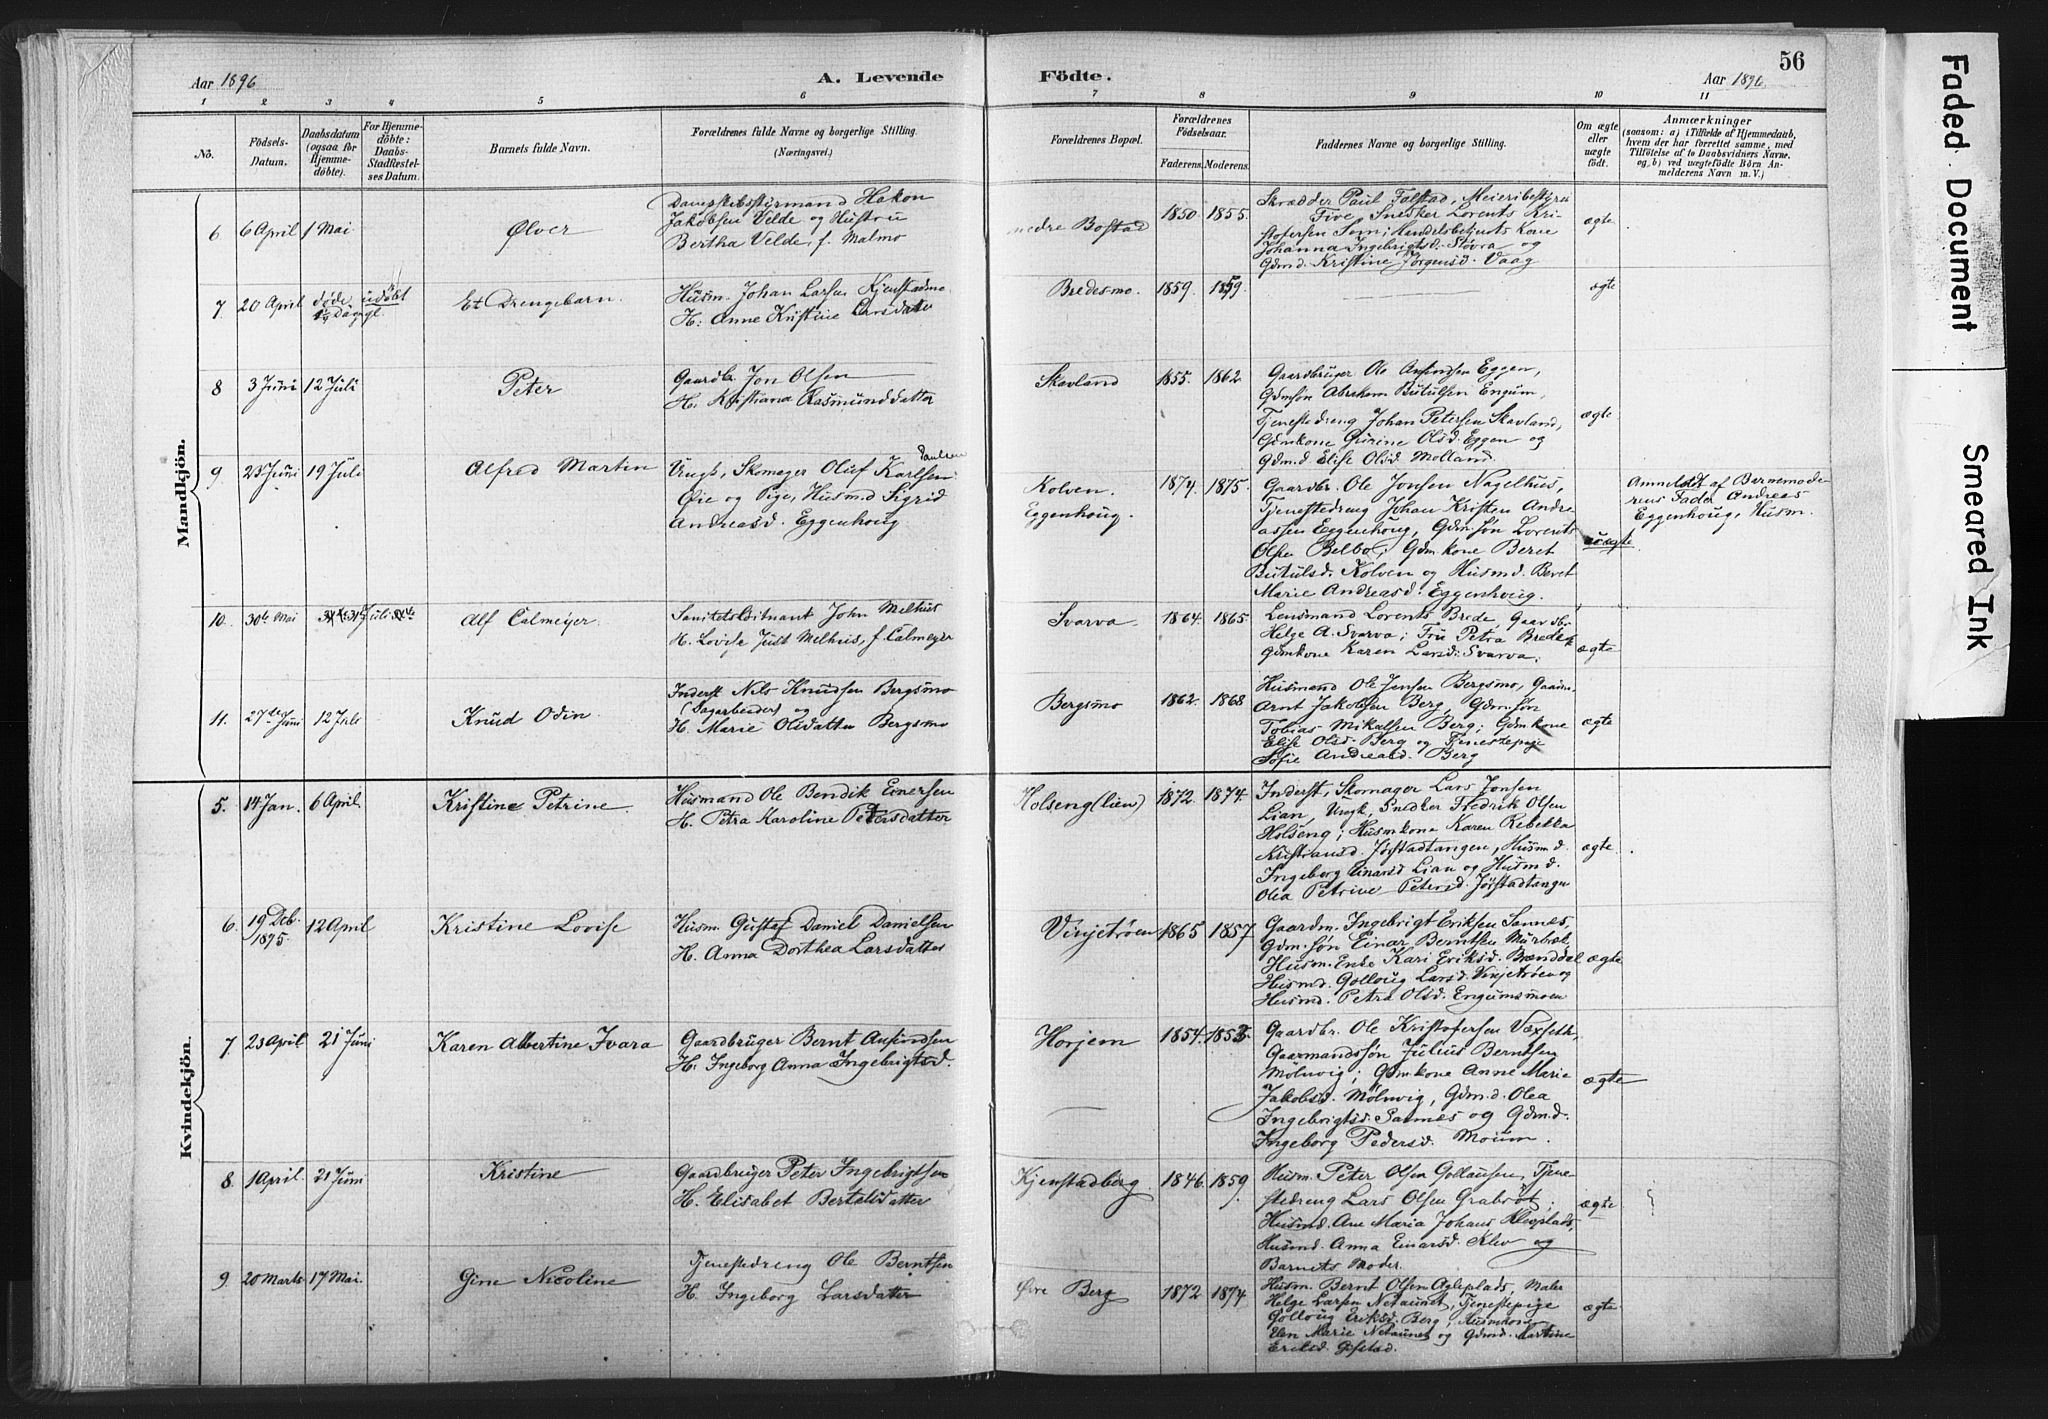 56
Aar 1896
A. Levende
Födte.
Aar 1896
1 2 3 4 5 6 7 8 9 10 11
No.
Födsels-
Datum.
Daabsdatum
(ogsaa for
Hjemme-
döbte).
For Hjemme-
döbte:
Daabs-
Stadfæstel-
ses Datum.
Barnets fulde Navn.
Forældrenes fulde Navne og borgerlige Stilling.
(Næringsvei.)
Forældrenes Bopæl.
Forældrenes
Födselsaar.
Faderens. Moderens.
Faddernes Navne og borgerlige Stilling.
Om ægte
eller
uægte
födt.
Anmærkninger
(saasom: a) i Tilfælde af Hjemmedaab,
hvem der har forrettet samme, med
Tilföielse af to Daabsvidners Navne.
og b) ved uægtefödte Börn An-
melderens Navn m. V.)
Mandkjön.
6 6 April 1 Mai
Ølver
Dampskibsstyrmand Hakon
Jakobsen Velde og Hustru
Bertha Velde, f. Malmo
nedre Bostad
1850. 1855.
Skrædder Paul Folstad, Meieribestyrer
Five, Snekker Lorents Kri-
stofersen Sem; Handelsbetjents Kone
Johanna Ingebrigtsd. Støvra og
Gdmd. Kristine Jörgensd. Vaag
ægte
7. 20 April døde udøbt
Et Drengebarn.
Husm. Johan Larsen Kjenstadmo
H: Anne Kristine Larsdatter
Bredesmo. 1859. 1859.
ægte
8 3 Juni 12 Juli
Peter
Gaardbr. Jon Olsen
H. Kristiana Rasmunddatter
Skavland 1855. 1862.
Gaardbruger Ole Ansindsen Eggen,
Gdmsøn Abraham Butulsen Engum,
Tjenestedreng Johan Petersen Skavland,
Gdmkone Gurine Olsd. Eggen og
Gdm.d Elise Olsd. Molland.
ægte
9 25 Juni 19 Juli
Alfred Martin
Ungk. Skomager Oluf Karlsen
Øie og Pige, Husm.d Sigrid
Andreasd. Eggenhoug
Kolven.
Eggenhoug.
1874. 1875.
Gaardbr. Ole Jonsen Nagelhus,
Tjenestedreng Johan Kristen Andre-
assen Eggenhoug, Gdm.søn Lorents
Olsen Belbo; Gdm.kone Beret
Butulsd. Kolven og Husmd. Beret
Marie Andreasd. Eggenhoug.
uægte
Anmeldt af Barnemode-
rens Fader Andreas
Eggenhoug, Husm.
10. 30te Mai
Alf Calmeyer
Sanitetsløitnant John Melhus
H. Lovise Just Melhus, f. Calmeyer
Svarva 1864. 1865.
Lensmand Lorents Brede, Gaardbr.
Helge A. Svarva; Fru Petra Brede,
Gdmkone Karen Larsd. Svarva.
ægte
11. 27de Juni 12 Juli
Knud Odin
Inderst Nils Knudsen Bergsmo
(Dagarbeider) og
H. Marie Olsdatter Bergsmo
Bergsmo 1862. 1868
Husmand Ole Jensen Bergsmo, Gaardm.
Arnt Jakobsen Berg, Gdm.søn
Tobias Mikalsen Berg; Gdm.kone
Elise Olsd. Berg og Tjenestepige
Sofie Andreasd. Berg
ægte
Kvindekjön.
5. 14 Jan. 6 April
Kristine Petrine
Husmand Ole Bendik Einersen
H. Petra Karoline Petersdatter
Holseng (lien) 1872. 1874.
Inderst, Skomager Lars Jonsen
Lian, Ungk, Snedker Fredrik Olsen
Holseng; Husmkone Karen Rebekka
Kristiansd. Jørstadtangen, Husm.d.
Ingeborg Einarsd Lian og Husm.d.
Olea Petrine Petersd. Jørstadtangen
ægte
6. 19 Deb. 1895. 12 April
Kristine Lovise
Husm. Gustaf Daniel Danielsen
H. Anna Dorthea Larsdatter
Vinjetrøen 1865 1857
Gaardm. Ingebrigt Eriksen Sannes,
Gdm.søn Einar Berntsen Murbræk,
Husm. Enke Kari Eriksd. Brænddal
Husmd. Golloug Larsd. Vinjetrøen og
Husmd. Petra Olsd. Engumsmoen
ægte
7. 23 April 21 Juni
Karen Albertine Ivara
Gaardbruger Bernt Ansindsen
H. Ingeborg Anna Ingebrigtsd.
Horjem 1854.
Gaardbr. Ole Kristofersen Væxseth,
Gaarmandssøn Julius Berntsen
Mølnvig; Gdm.kone Anne Marie
Jakobsd. Mølnvig, Gdm.d. Olea
Ingebrigtsd. Sannes og Gdm.d.
Ingeborg Pedersd. Moum.
ægte
8. 1 April 21 Juni
Kristine
Gaardbruger Peter Ingebrigtsen
H. Elisabet Bertelsdatter
Kjenstadberg 1846. 1859.
Husm. Peter Olsen Gollausen, Tjene-
stedreng Lars Olsen Grabrøt;
Husmd. Ane Maria Johans. Klevplads,
Husmd. Anna Einarsd. Klev og
Barnets Moder.
ægte
9. 20 Marts 17 Mai
Gine Nicoline
Tjenestedreng Ole Berntsen
H. Ingeborg Larsdatter
Øvre Berg 1872 1874
Husm. Bernt Olsen Agleplads, Maler
Helge Larsen Netaunet, Tjenestepige
Golloug Eriksd. Berg, Husmkone
Elen Marie Netaunet og Gdmd. Martine
Eriksd. Gifstad.
ægte
Faded Document Smeared Ink